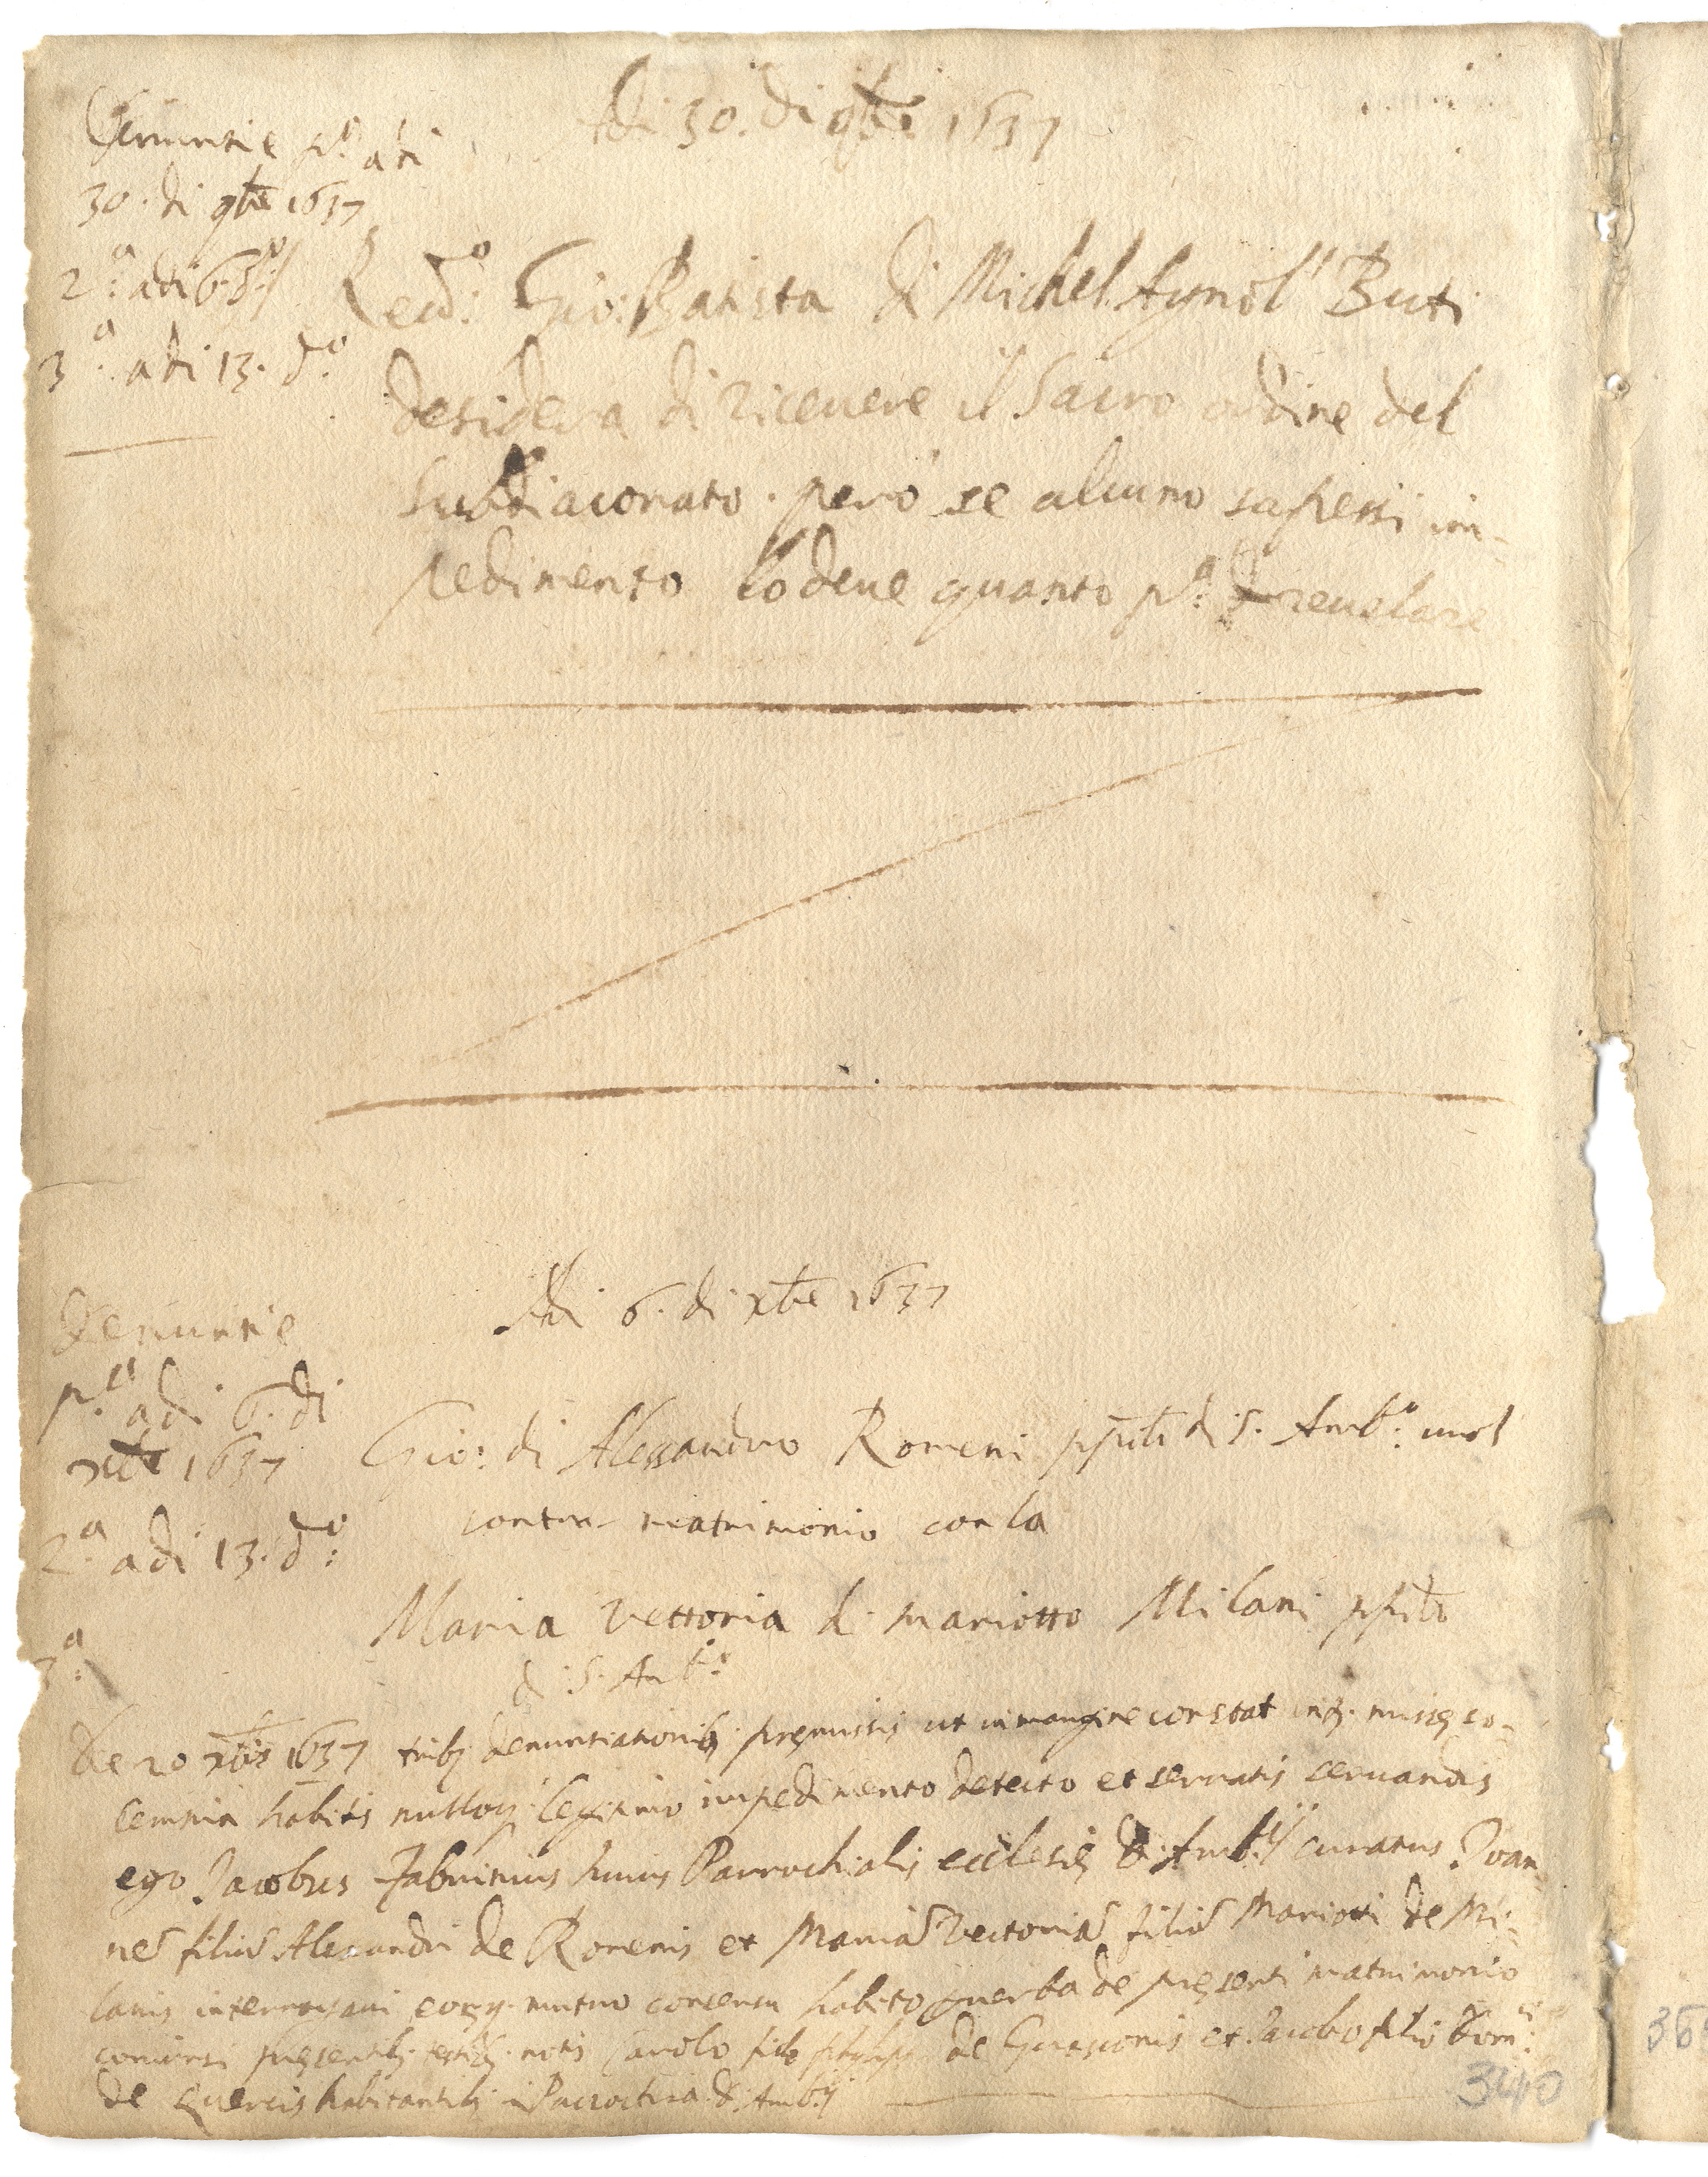 Adi 30. di 9bre 1637
Denuntie pa. adi
30. di 9bre 1637
2a. adi 6 Xbre
3a. adi 13. do.
Redo. Gio: Batista di Michel Agniol' Buti
desidera di riceuere il Sacro ordine del
subdiaconato. però se alcuno sapessi im-
pedimento lo deue quanto pa. reuelare
Adi 6. di Xbre 1637
Denuntie
pa. adi 6. di
Xbre 1637
2a. adi 13. do:
3a:
Gio: di Alessandro Romeni ppīto di S. Ambo: uuol
contrar matrimonio con la
Maria Vettoria di Mariotto Milani ppīto
di S. Ambo:
Die 20 Xbris 1637 tribq denuntiationibq premissis ut in margine constat inter missę so-
lemnia habitis nulloq legitimo impedimento detecto et seruatis seruandis
ego Jacobus Fabritius huius Parrochialis ecclesię S. Ambij curatus Joan-
nē filiū Alexandri de Romenis et Mariā Vectoriā filiā Mariotti de Mi-
lanis interrogaui eorq. mutuo consensu habito p uerba de pręsenti matrimonio
coniunsi pręsentibq testibq. notis Carolo filio philippi de Guasconis et Jacobo filio Dom:ci
de Quercis habitantibq in Parrochia S. Ambij
340